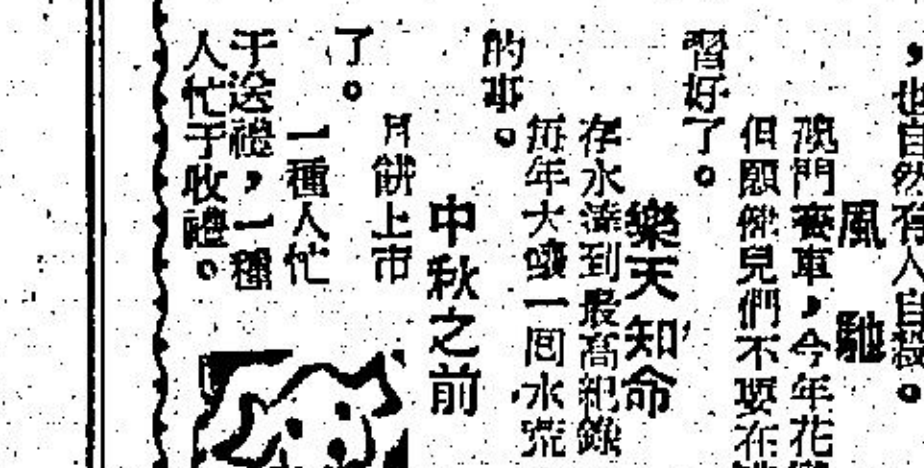 ，也自然有人自殺。
風馳
澳門賽車，今年花
但願佬兒們不要在
習好了。
樂天知命
存水達到最高紀錄
每年大嚷一囘水荒
的事。
中秋之前
月餅上市
了。
一種人忙
于送禮，一種
人忙于收禮。